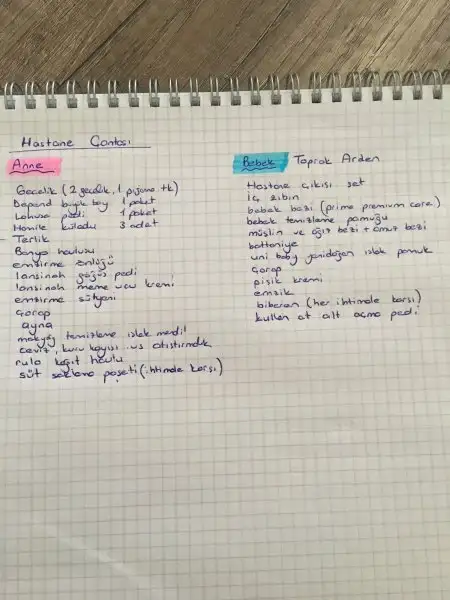 Hastane Çantası
Anne
Gecelik (2 gecelik, 1 pijama tk)
Depend büyük boy 1 paket
Lohusa pedi 1 paket
Hamile külodu 3 adet
Terlik
Banyo havlusu
emzirme önlüğü
lansinoh göğüs pedi
lansinoh meme ucu kremi
emzirme sütyeni
Çorap
ayna
makyaj temizleme ıslak mendil
ceviz, kuru kayısı vs atıştırmalık
rulo kağıt havlu
süt saklama poşeti (ihtimale karşı)
Bebek Toprak Arden
Hastane çıkışı set
İç zıbın
bebek bezi (prima premium care)
bebek temizleme pamuğu
müslin ve ağız bezi + omuz bezi
battaniye
uni baby yenidoğan ıslak pamuk
Çorap
pişik kremi
emzik
biberon (her ihtimale karşı)
kullan at alt açma pedi